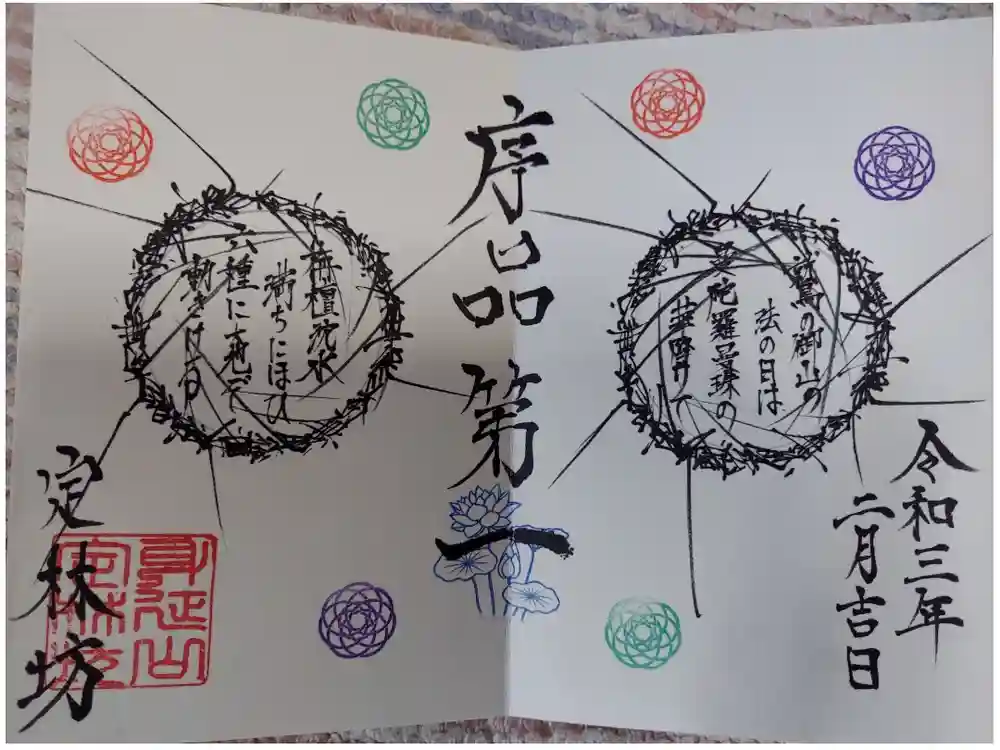 令和三年
二月吉日
鷲の御山の
法の日は
曼陀羅曼珠の
華降りて
序品第一
栴檀沈水
満ちにほひ
六種に大地ぞ
動きける
定林坊
身延山
定林坊